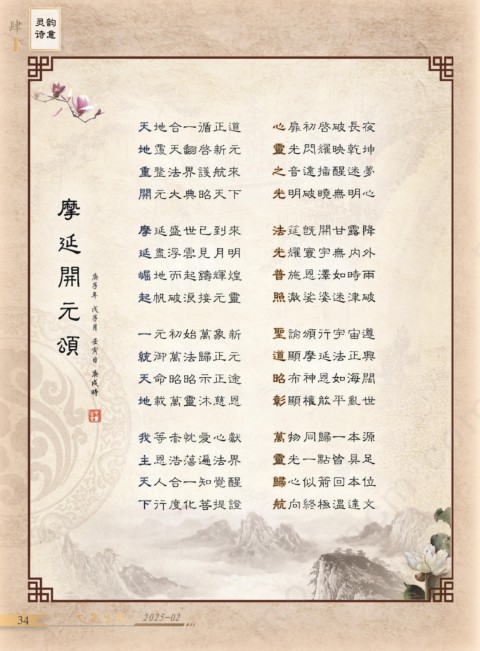 肆
灵韵
诗意
摩延開元頌
庚子年 戊子月 壬寅日 庚戌時
天地合一循正道
地覆天翻啓新元
重整法界護航來
開元大典昭天下
摩延盛世已到來
延盡浮雲見月明
崛地而起鑄輝煌
起帆破浪接元靈
一元初始萬象新
統御萬法歸正元
天命昭昭示正途
地載萬靈沐慈恩
我等赤忱愛心獻
主恩浩蕩遍法界
天人合一知覺醒
下行度化菩提證
心扉初啓破長夜
靈光閃耀映乾坤
之音遠播醒迷夢
光明破曉無明心
法筵既開甘露降
光耀寰宇無内外
普施恩澤如時雨
照澈娑婆迷津破
聖諭頒行宇宙遵
道顯摩延法正興
昭布神恩如海闊
彰顯權能平亂世
萬物同歸一本源
靈光一點皆具足
歸心似箭回本位
航向終極溫達文
34
2025-02